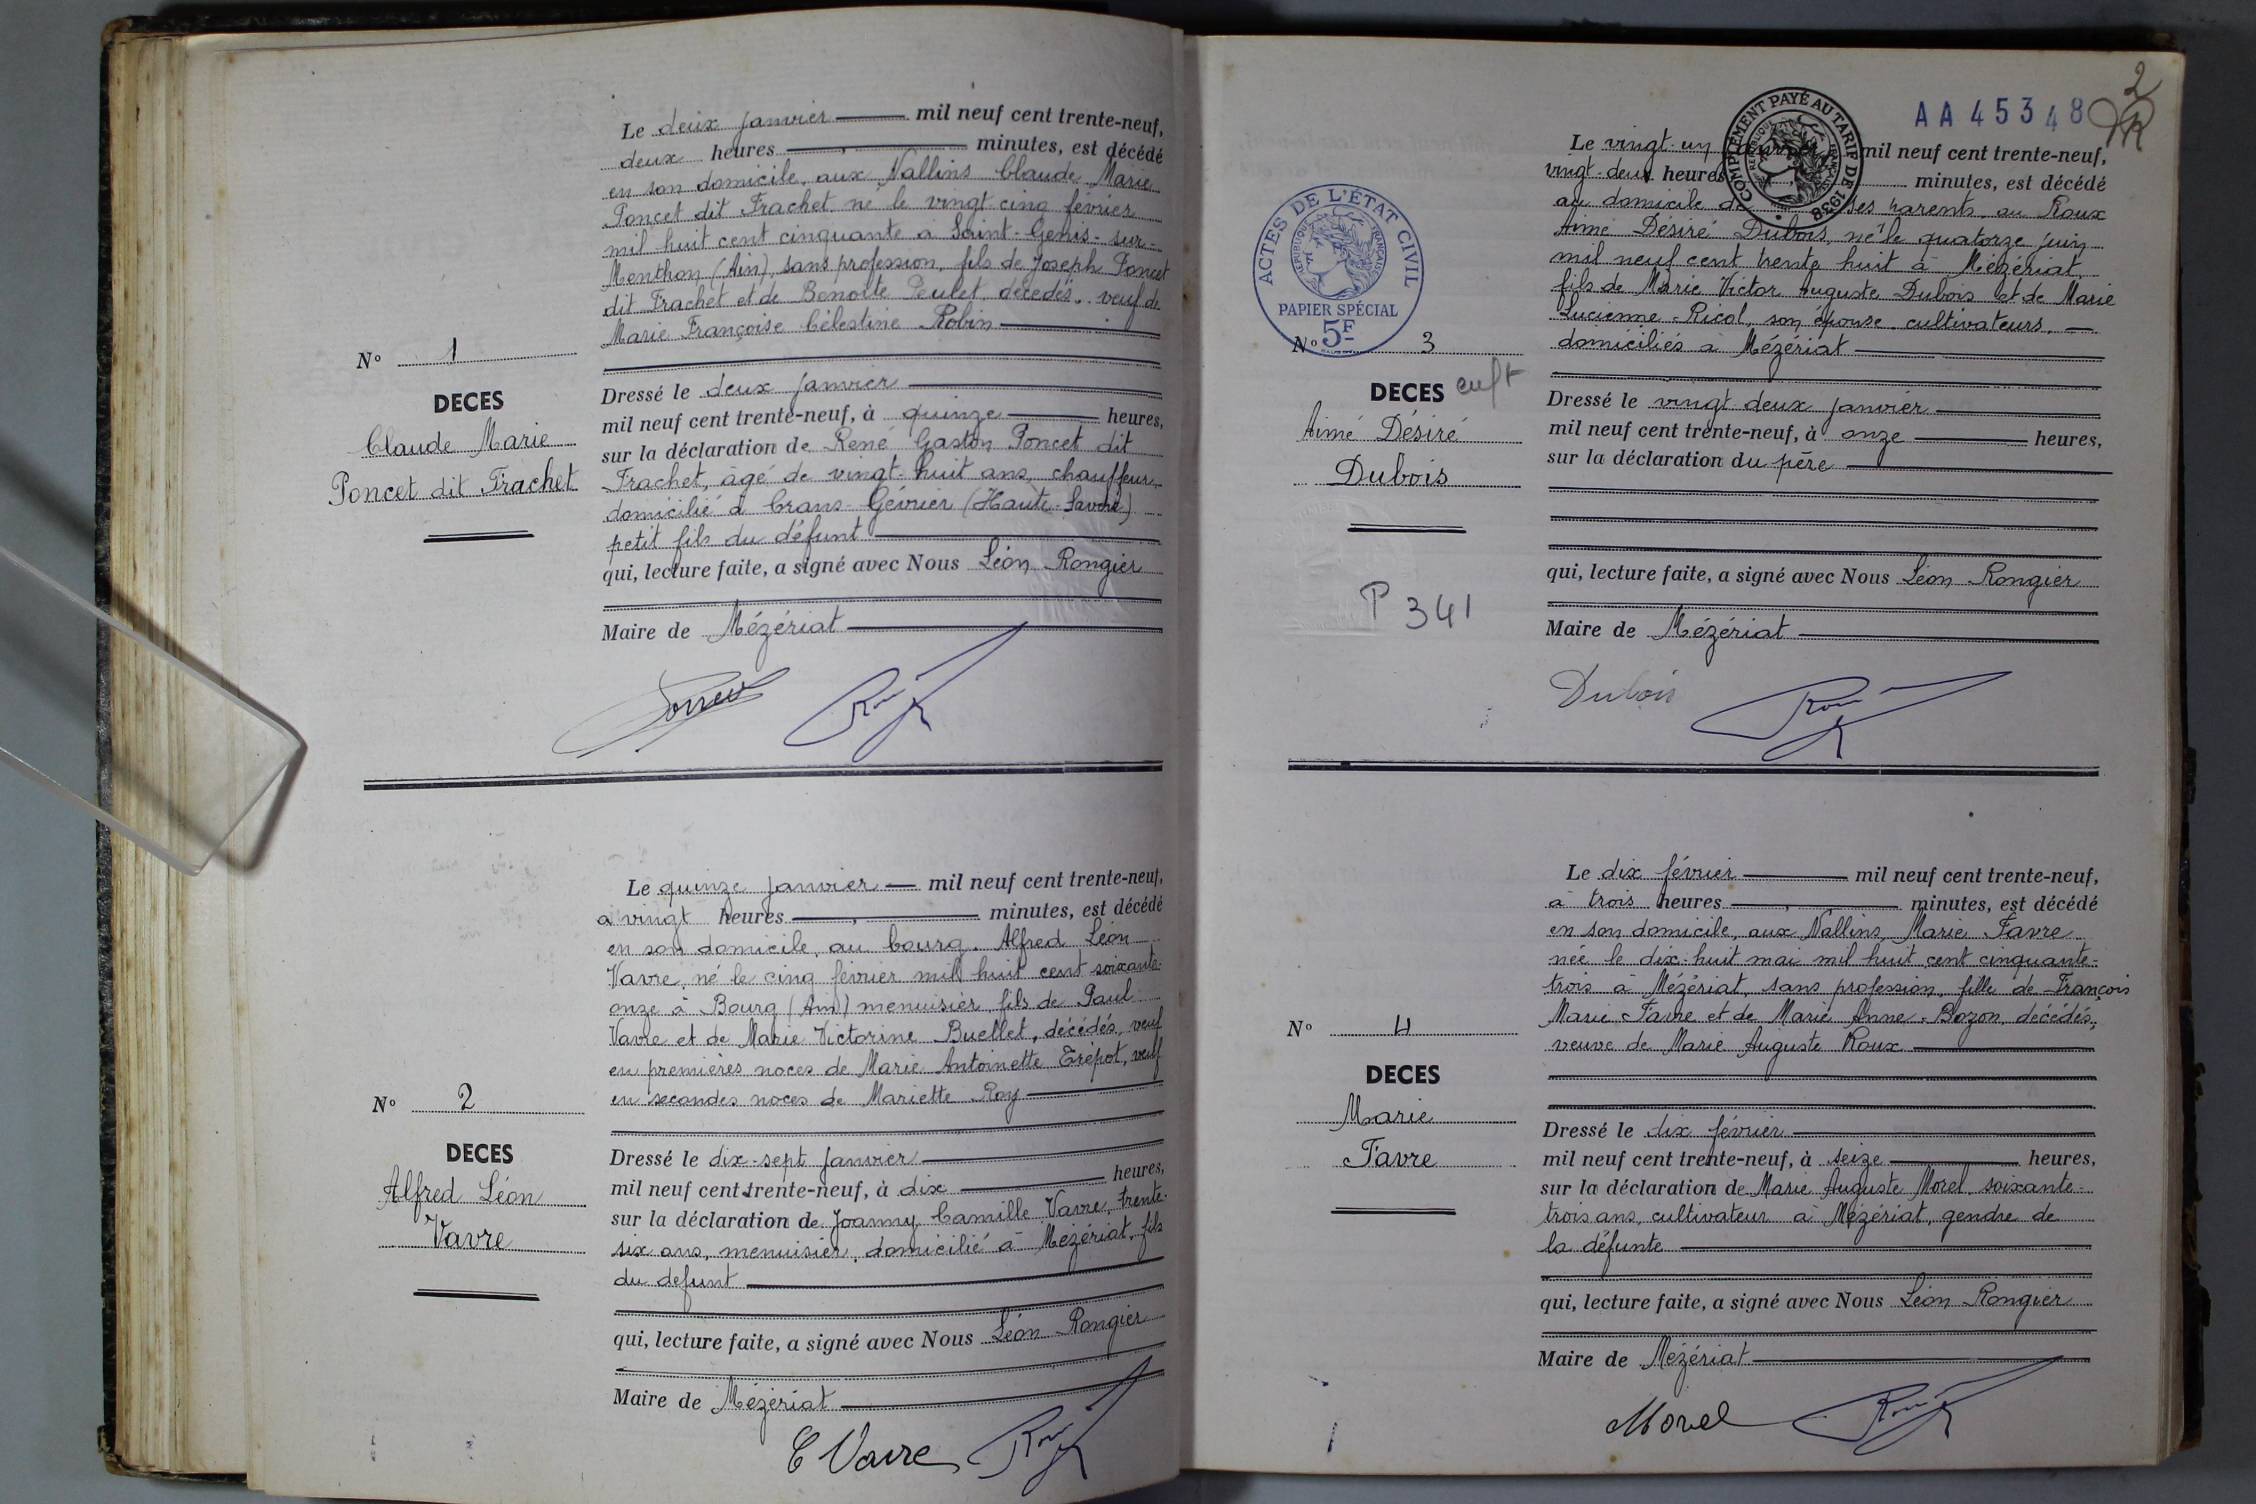 Le deux janvier mil neuf cent trente-neuf,
deux heures minutes, est décédé
en son domicile, aux Vallins Claude Marie
Poncet dit Frachet, né le vingt cinq février
mil huit cent cinquante à Saint-Genis-sur-
Menthon (Ain), sans profession, fils de Joseph Poncet
dit Frachet et de Benoîte Peulet, décédés, veuf de
Marie Françoise Célestine Robin
N° 1
DECES
Claude Marie
Poncet dit Frachet
Dressé le deux janvier
mil neuf cent trente-neuf, à quinze heures,
sur la déclaration de René Gaston Poncet dit
Frachet, âgé de vingt-huit ans, chauffeur,
domicilié à Crans-Gévrier (Haute-Savoie)
petit fils du défunt
qui, lecture faite, a signé avec Nous Léon Rongier
Maire de Mézériat
Le quinze janvier mil neuf cent trente-neuf,
à vingt heures minutes, est décédé
en son domicile, au bourg, Alfred Léon
Vavre, né le cinq février mil huit cent soixante-
onze à Bourg (Ain) menuisier, fils de Paul
Vavre et de Marie Victorine Buellet, décédés, veuf
en premières noces de Marie Antoinette Trépot, veuf
en secondes noces de Mariette Roy
N° 2
DECES
Alfred Léon
Vavre
Dressé le dix-sept janvier
mil neuf cent trente-neuf, à dix heures,
sur la déclaration de Joanny Camille Vavre, trente-
six ans, menuisier, domicilié à Mézériat, fils
du défunt
qui, lecture faite, a signé avec Nous Léon Rongier
Maire de Mézériat
C Vavre
2
AA 45348
COMPLÉMENT PAYÉ AU TARIF DE 1938
ACTES DE L'ÉTAT CIVIL
RÉPUBLIQUE FRANÇAISE
PAPIER SPÉCIAL
5F
Le vingt-un janvier mil neuf cent trente-neuf,
vingt-deux heures minutes, est décédé
au domicile de ses parents, au Roux
Aimé Désiré Dubois, né le quatorze juin
mil neuf cent trente huit à Mézériat,
fils de Marie Victor Auguste Dubois et de Marie
Lucienne Ricol, son épouse, cultivateurs,
domiciliés à Mézériat
N° 3
DECES enft
Aimé Désiré
Dubois
P 341
Dressé le vingt deux janvier
mil neuf cent trente-neuf, à onze heures,
sur la déclaration du père
qui, lecture faite, a signé avec Nous Léon Rongier
Maire de Mézériat
Dubois
Le dix février mil neuf cent trente-neuf,
à trois heures minutes, est décédé
en son domicile, aux Vallins, Marie Favre
née le dix-huit mai mil huit cent cinquante-
trois à Mézériat, sans profession, fille de François
Marie Favre et de Marie Anne Bozon, décédés,
veuve de Marie Auguste Roux
N° 4
DECES
Marie
Favre
Dressé le dix février
mil neuf cent trente-neuf, à seize heures,
sur la déclaration de Marie Auguste Morel, soixante-
trois ans, cultivateur à Mézériat, gendre de
la défunte
qui, lecture faite, a signé avec Nous Léon Rongier
Maire de Mézériat
Morel